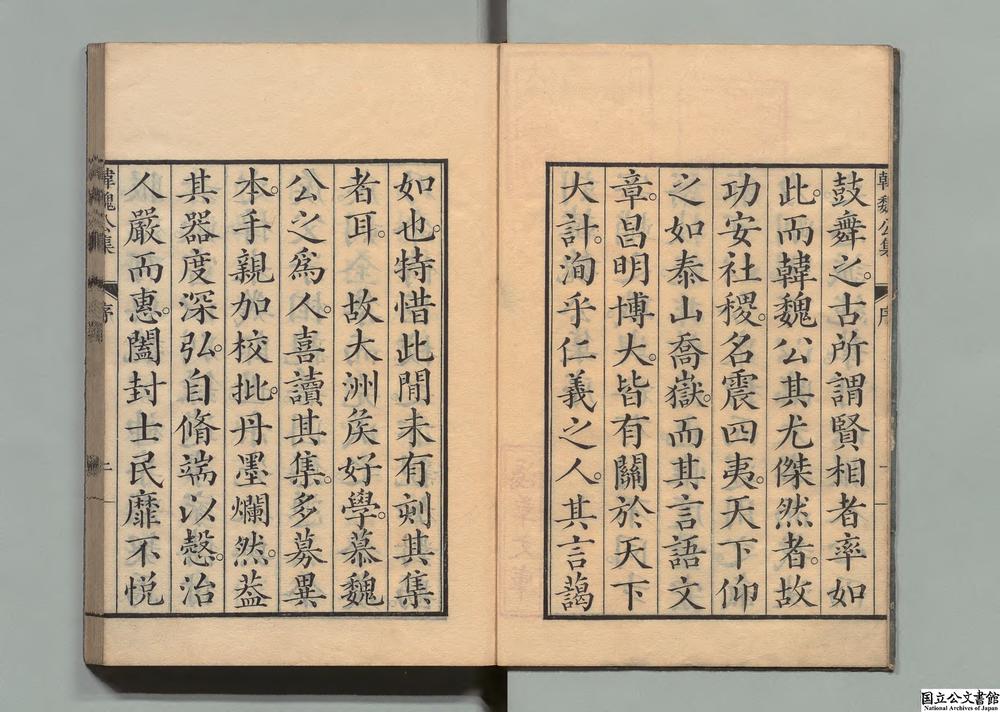 鼓舞之。古所謂賢相者率如
此。而韓魏公其尤傑然者。故
功安社稷。名震四夷。天下仰
之如泰山喬嶽。而其言語文
章。昌明博大。皆有關於天下
大計。洵乎仁義之人。其言藹
如也。特惜此間未有刻其集
者耳。故大洲矦好學。慕魏
公之爲人。喜讀其集。多募異
本。手親加校批。丹墨爛然。葢
其器度深弘。自脩端以慤。治
人嚴而惠。闔封士民靡不悦
韓魏公集
序
一
韓魏公集
序
二
国立公文書館
National Archives of Japan